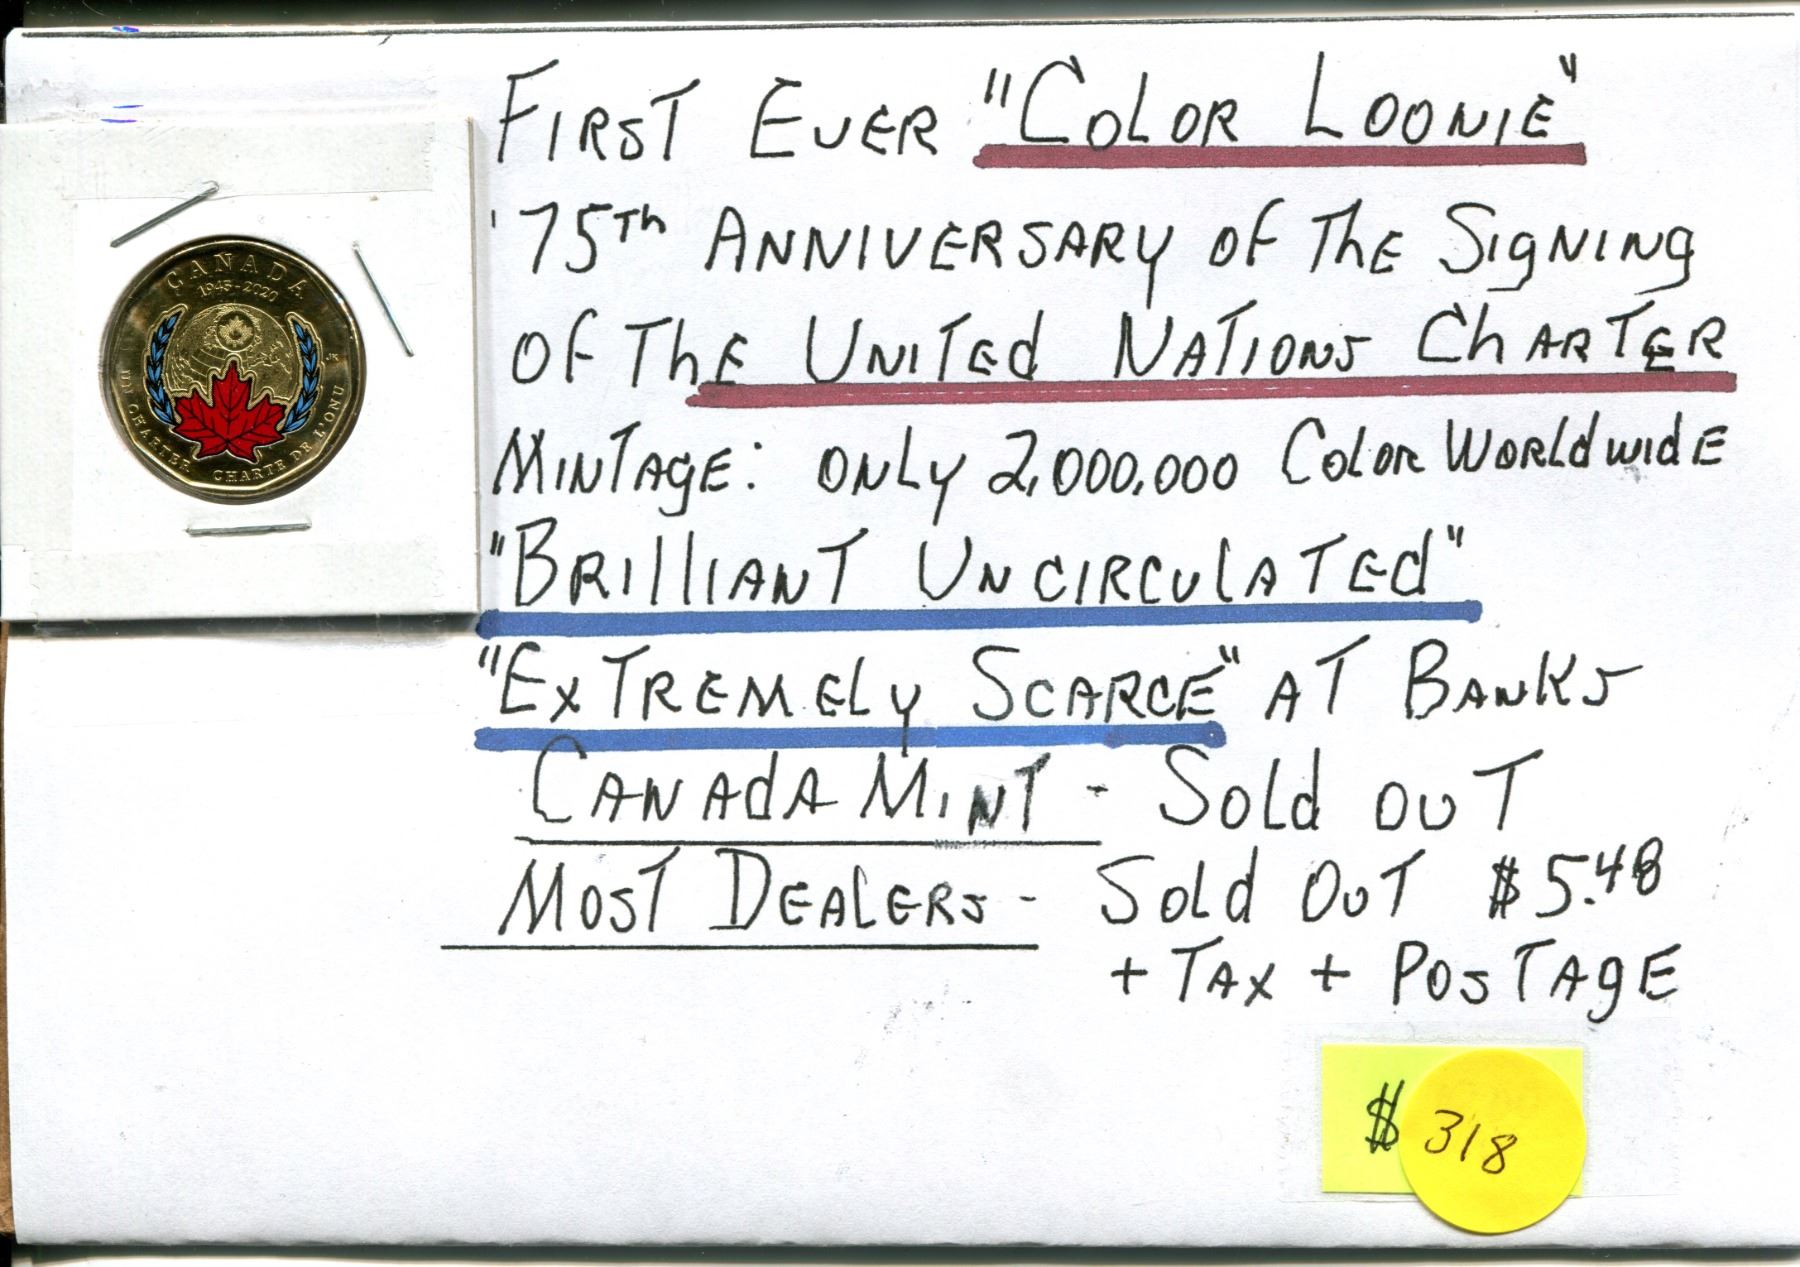 CANADA
1945-2020
JK
UN CHARTER CHARTE DE L'ONU
FIRST EVER "COLOR LOONIE"
'75Th ANNIVERSARY OF ThE SIgNINg
OF ThE UNITEd NATIONS ChARTER
MINTAgE: ONLy 2,000,000 Color WORldwidE
"BRIllIANT UNCIRCUlATEd"
"EXTREMEly SCARCE" AT BANKS
CANAdA MINT - Sold OUT
MOST DEALERS - Sold OUT $5.48
+ TAX + POSTAgE
$ 318